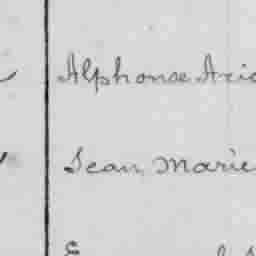 Alphonse
Jean, Marie